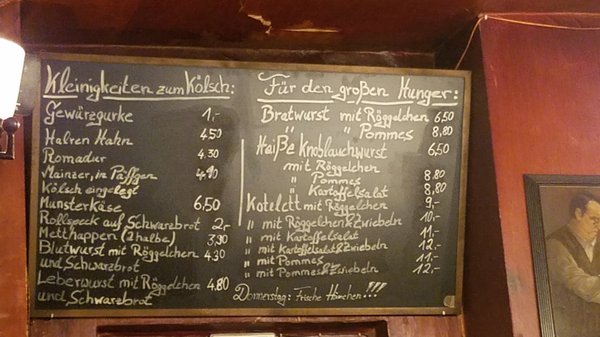 Kleinigkeiten zum Kölsch:
Gewürzgurke 1,-
Halven Hahn 4.50
Romadur 4.30
Mainzer, in Päffgen 4.90
Kölsch eingelegt
Munsterkäse 6,50
Rollspeck auf Schwarzbrot 2,-
Metthappen (2 halbe) 3,90
Blutwurst mit Röggelchen 4.30
und Schwarzbrot
Leberwurst mit Röggelchen 4.80
und Schwarzbrot
Für den großen Hunger:
Bratwurst mit Röggelchen 6,50
" " Pommes 8,80
Heiße Knoblauchwurst 6,50
mit Röggelchen
" Pommes 8.80
" Kartoffelsalat 8,80
Kotelett mit Röggelchen 9,-
" mit Röggelchen & Zwiebeln 10,-
" mit Kartoffelsalat 11,-
" mit Kartoffelsalat & Zwiebeln 12,-
" mit Pommes 11,-
" mit Pommes & Zwiebeln 12,-
Donnerstag: Frische Hämchen!!!